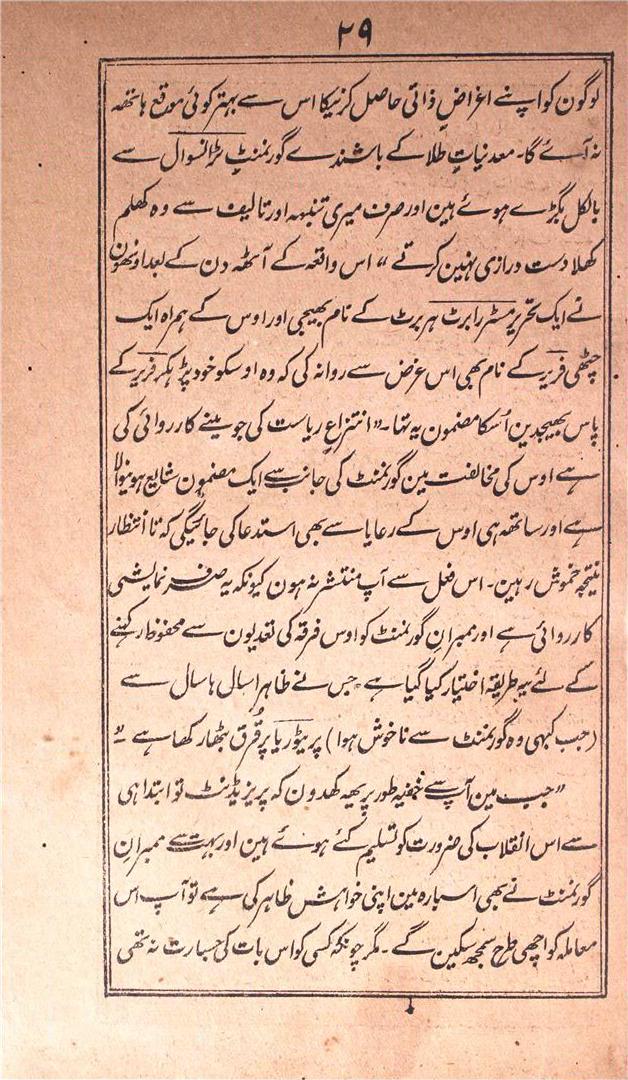 ۲۹
لوگون کو اپنے اغراضِ ذاتی حاصل کرنیکا اس سے بہتر کوئی موقع ہاتھہ
نہ آئے گا۔ معدنیاتِ طلا کے باشندے گورنمنٹ ٹرانسوال سے
بالکل بگڑے ہوئے ہین اور صرف میری تنبیہہ اور تالیف سے وہ کھلم
کھلا دست درازی نہین کرتے ،، اس واقعہ کے آٹھہ دن کے بعد اونھون
نے ایک تحریر مسٹر رابرٹ ہربرٹ کے نام بھیجی اور اوس کے ہمراہ ایک
چٹھی فریر کے نام بھی اس غرض سے روانہ کی کہ وہ اوسکو خود پڑہکر فریر کے
پاس بھیجدین اُسکا مضمون یہ تھا۔ ،،انتزاعِ ریاست کی جو مینے کارروائی کی
ہے اوس کی مخالفت مین گورنمنٹ کی جانب سے ایک مضمون شایع ہونیوالا
ہے اور ساتھہ ہی اوس کے رعایا سے بھی استدعا کی جائیگی کہ تا انتظار
نتیجہ خموش رہین۔ اس فعل سے آپ منتشر نہ ہون کیونکہ یہ صرف نمایشی
کارروائی ہے اور ممبرانِ گورنمنٹ کو اوس فرقہ کی تعدیون سے محفوظ رکہنے
کے لئے یہ طریقہ اختیار کیا گیا ہے جس نے ظاہرا سالہا سال سے
(جب کبہی وہ گورنمنٹ سے ناخوش ہوا) پریٹوریا پر قُرق بٹھا رکھا ہے ،،
،،جب مین آپ سے خفیہ طور پر یہہ کھدون کہ پریزیڈنٹ تو ابتدا ہی
سے اس انقلاب کی ضرورت کو تسلیم کئے ہوئے ہین اور بہت سے ممبرانِ
گورنمنٹ نے بھی اسبارہ مین اپنی خواہش ظاہر کی ہے تو آپ اس
معاملہ کو اچھی طرح سمجھ سکین گے۔ مگر چونکہ کسی کو اس بات کی جسارت نہ تھی